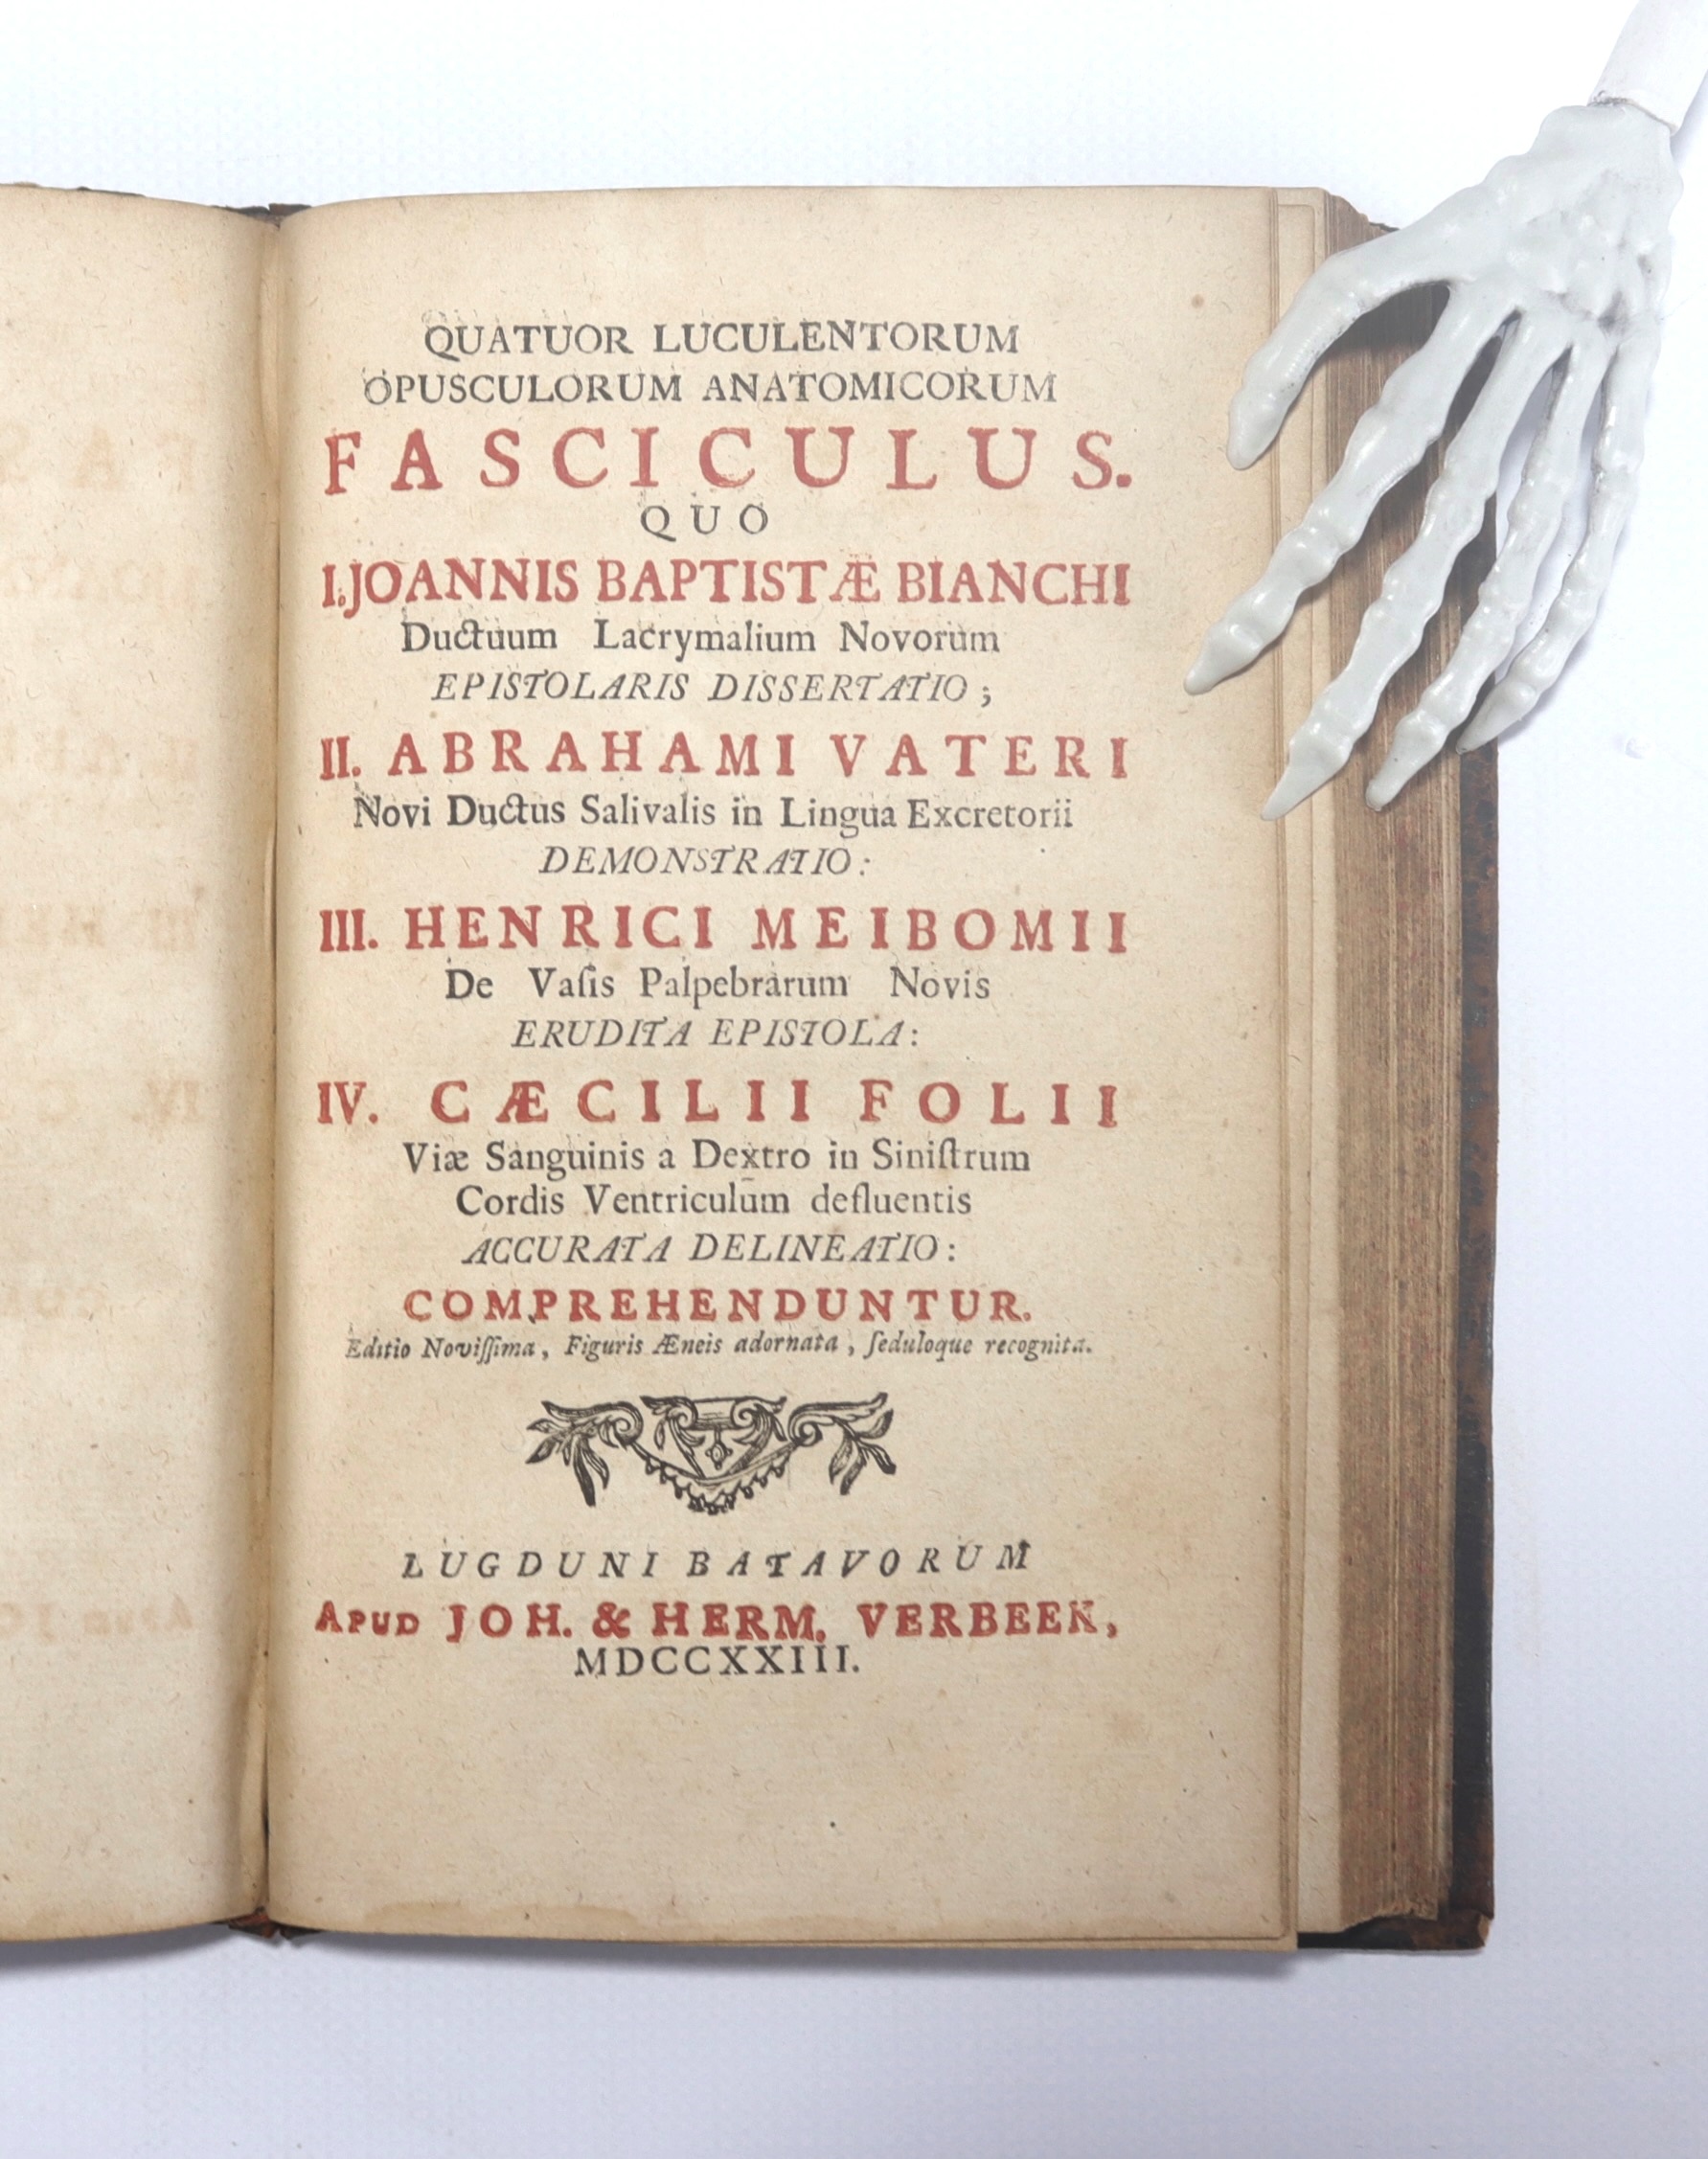 QUATUOR LUCULENTORUM
OPUSCULORUM ANATOMICORUM
FASCICULUS.
QUO
I. JOANNIS BAPTISTÆ BIANCHI
Ductuum Lacrymalium Novorum
EPISTOLARIS DISSERTATIO;
II. ABRAHAMI VATERI
Novi Ductus Salivalis in Lingua Excretorii
DEMONSTRATIO:
III. HENRICI MEIBOMII
De Vaſis Palpebrarum Novis
ERUDITA EPISTOLA:
IV. CÆCILII FOLII
Viæ Sanguinis a Dextro in Siniſtrum
Cordis Ventriculum defluentis
ACCURATA DELINEATIO:
COMPREHENDUNTUR.
Editio Noviſſima, Figuris Æneis adornata, ſeduloque recognita.
LUGDUNI BATAVORUM
APUD JOH. & HERM. VERBEEK,
MDCCXXIII.